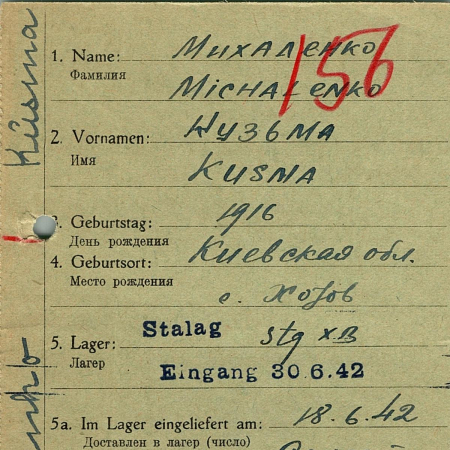 Kusma
1. Name: Михаленко
Фамилия
Michalenko
156
2. Vornamen: Кузьма
Имя
Kusma
3. Geburtstag: 1916
День рождения
4. Geburtsort: Киевская обл.
Место рождения
с.
5. Lager: Stalag Stg XB
Лагер
Eingang 30.6.42
5a. Im Lager eingeliefert am: 18.6.42
Доставлен в лагер (число)